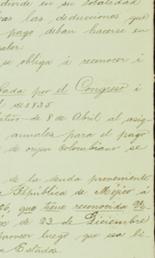 en su totalidad
las deducciones que
pago deban hacerse en
valor.
se obliga á reconocer i
por el Congreso i
de 1835
de 8 de Abril al asig
anuales para el pago
de origen Colombiano se
de la deuda proveniente
República de Méjico á
que tiene reconocida Ve
de 23 de Diciembre
luego que esa li
Estados.